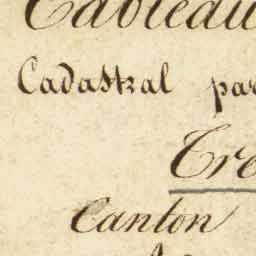 Tableau
Cadastral par
Tre
Canton